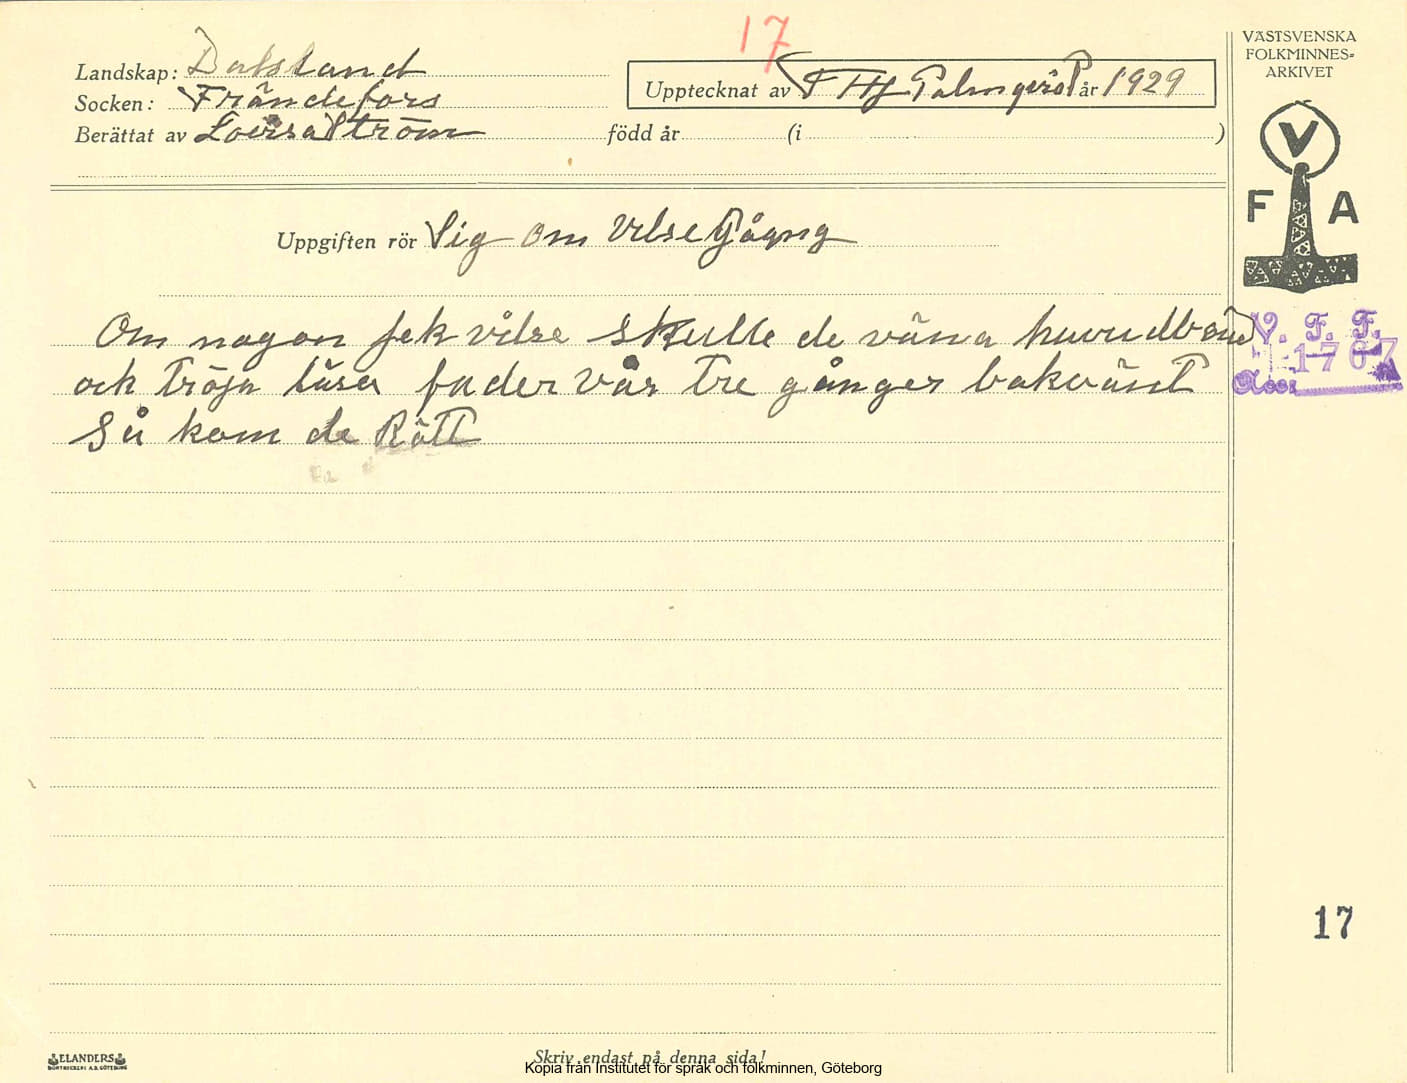 17
Landskap: Dalsland
Socken: Frändefors
Berättat av Lovisa Ström född år (i )
Upptecknat av F Hj Palmqvist år 1929
VÄSTSVENSKA
FOLKMINNES=
ARKIVET
V
F A
Uppgiften rör Sig om Vilse Gågng
V. F. F.
1767
Acc:
Om nogon jek vilse skulle deväna huvudbonad
och tröja läsa fader vår tre gånger bakvänt
Så kom de Rätt
17
ELANDERS
BOKTRYCKERI A.B. GÖTEBORG
Skriv endast på denna sida!
Kopia från Institutet för språk och folkminnen, Göteborg